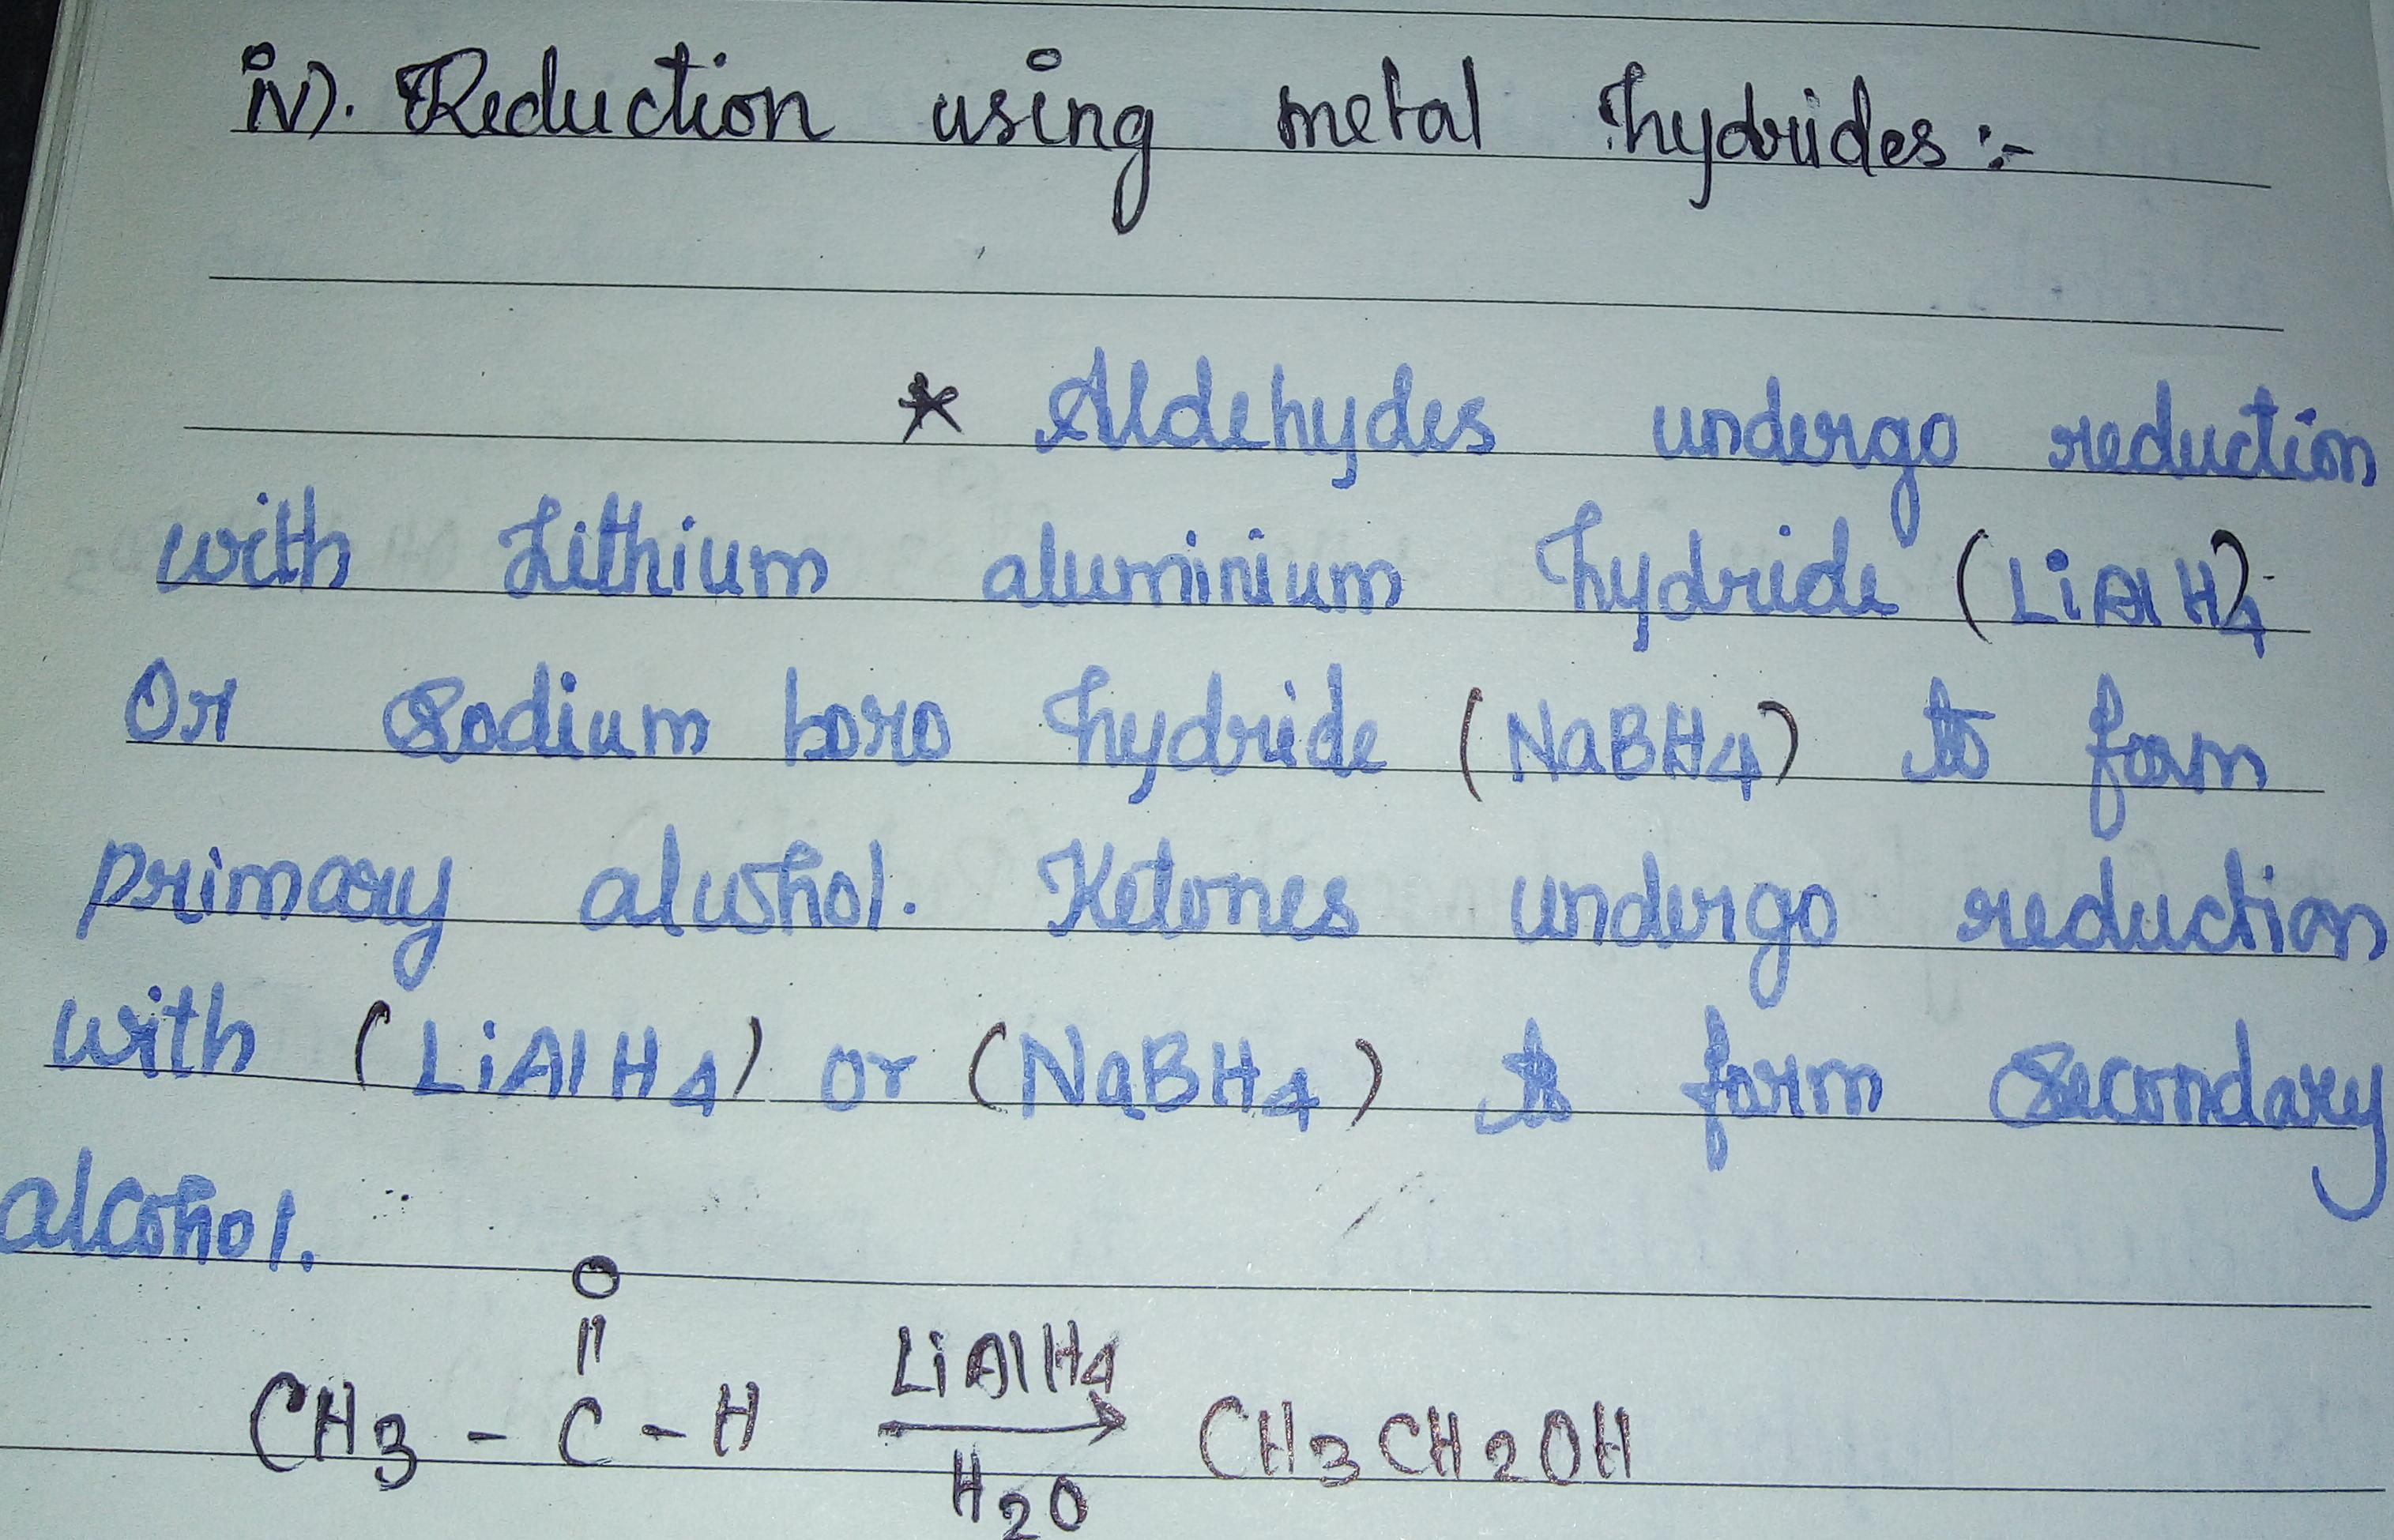 iv). Reduction using metal hydrides :-
* Aldehydes undergo reduction
with Lithium aluminium hydride (LiAlH4)
Or Sodium boro hydride (NaBH4) to form
primary alcohol. Ketones undergo reduction
with (LiAlH4) or (NaBH4) to form secondary
alcohol.
O
||
CH3 - C - H LiAlH4 → H2O CH3CH2OH